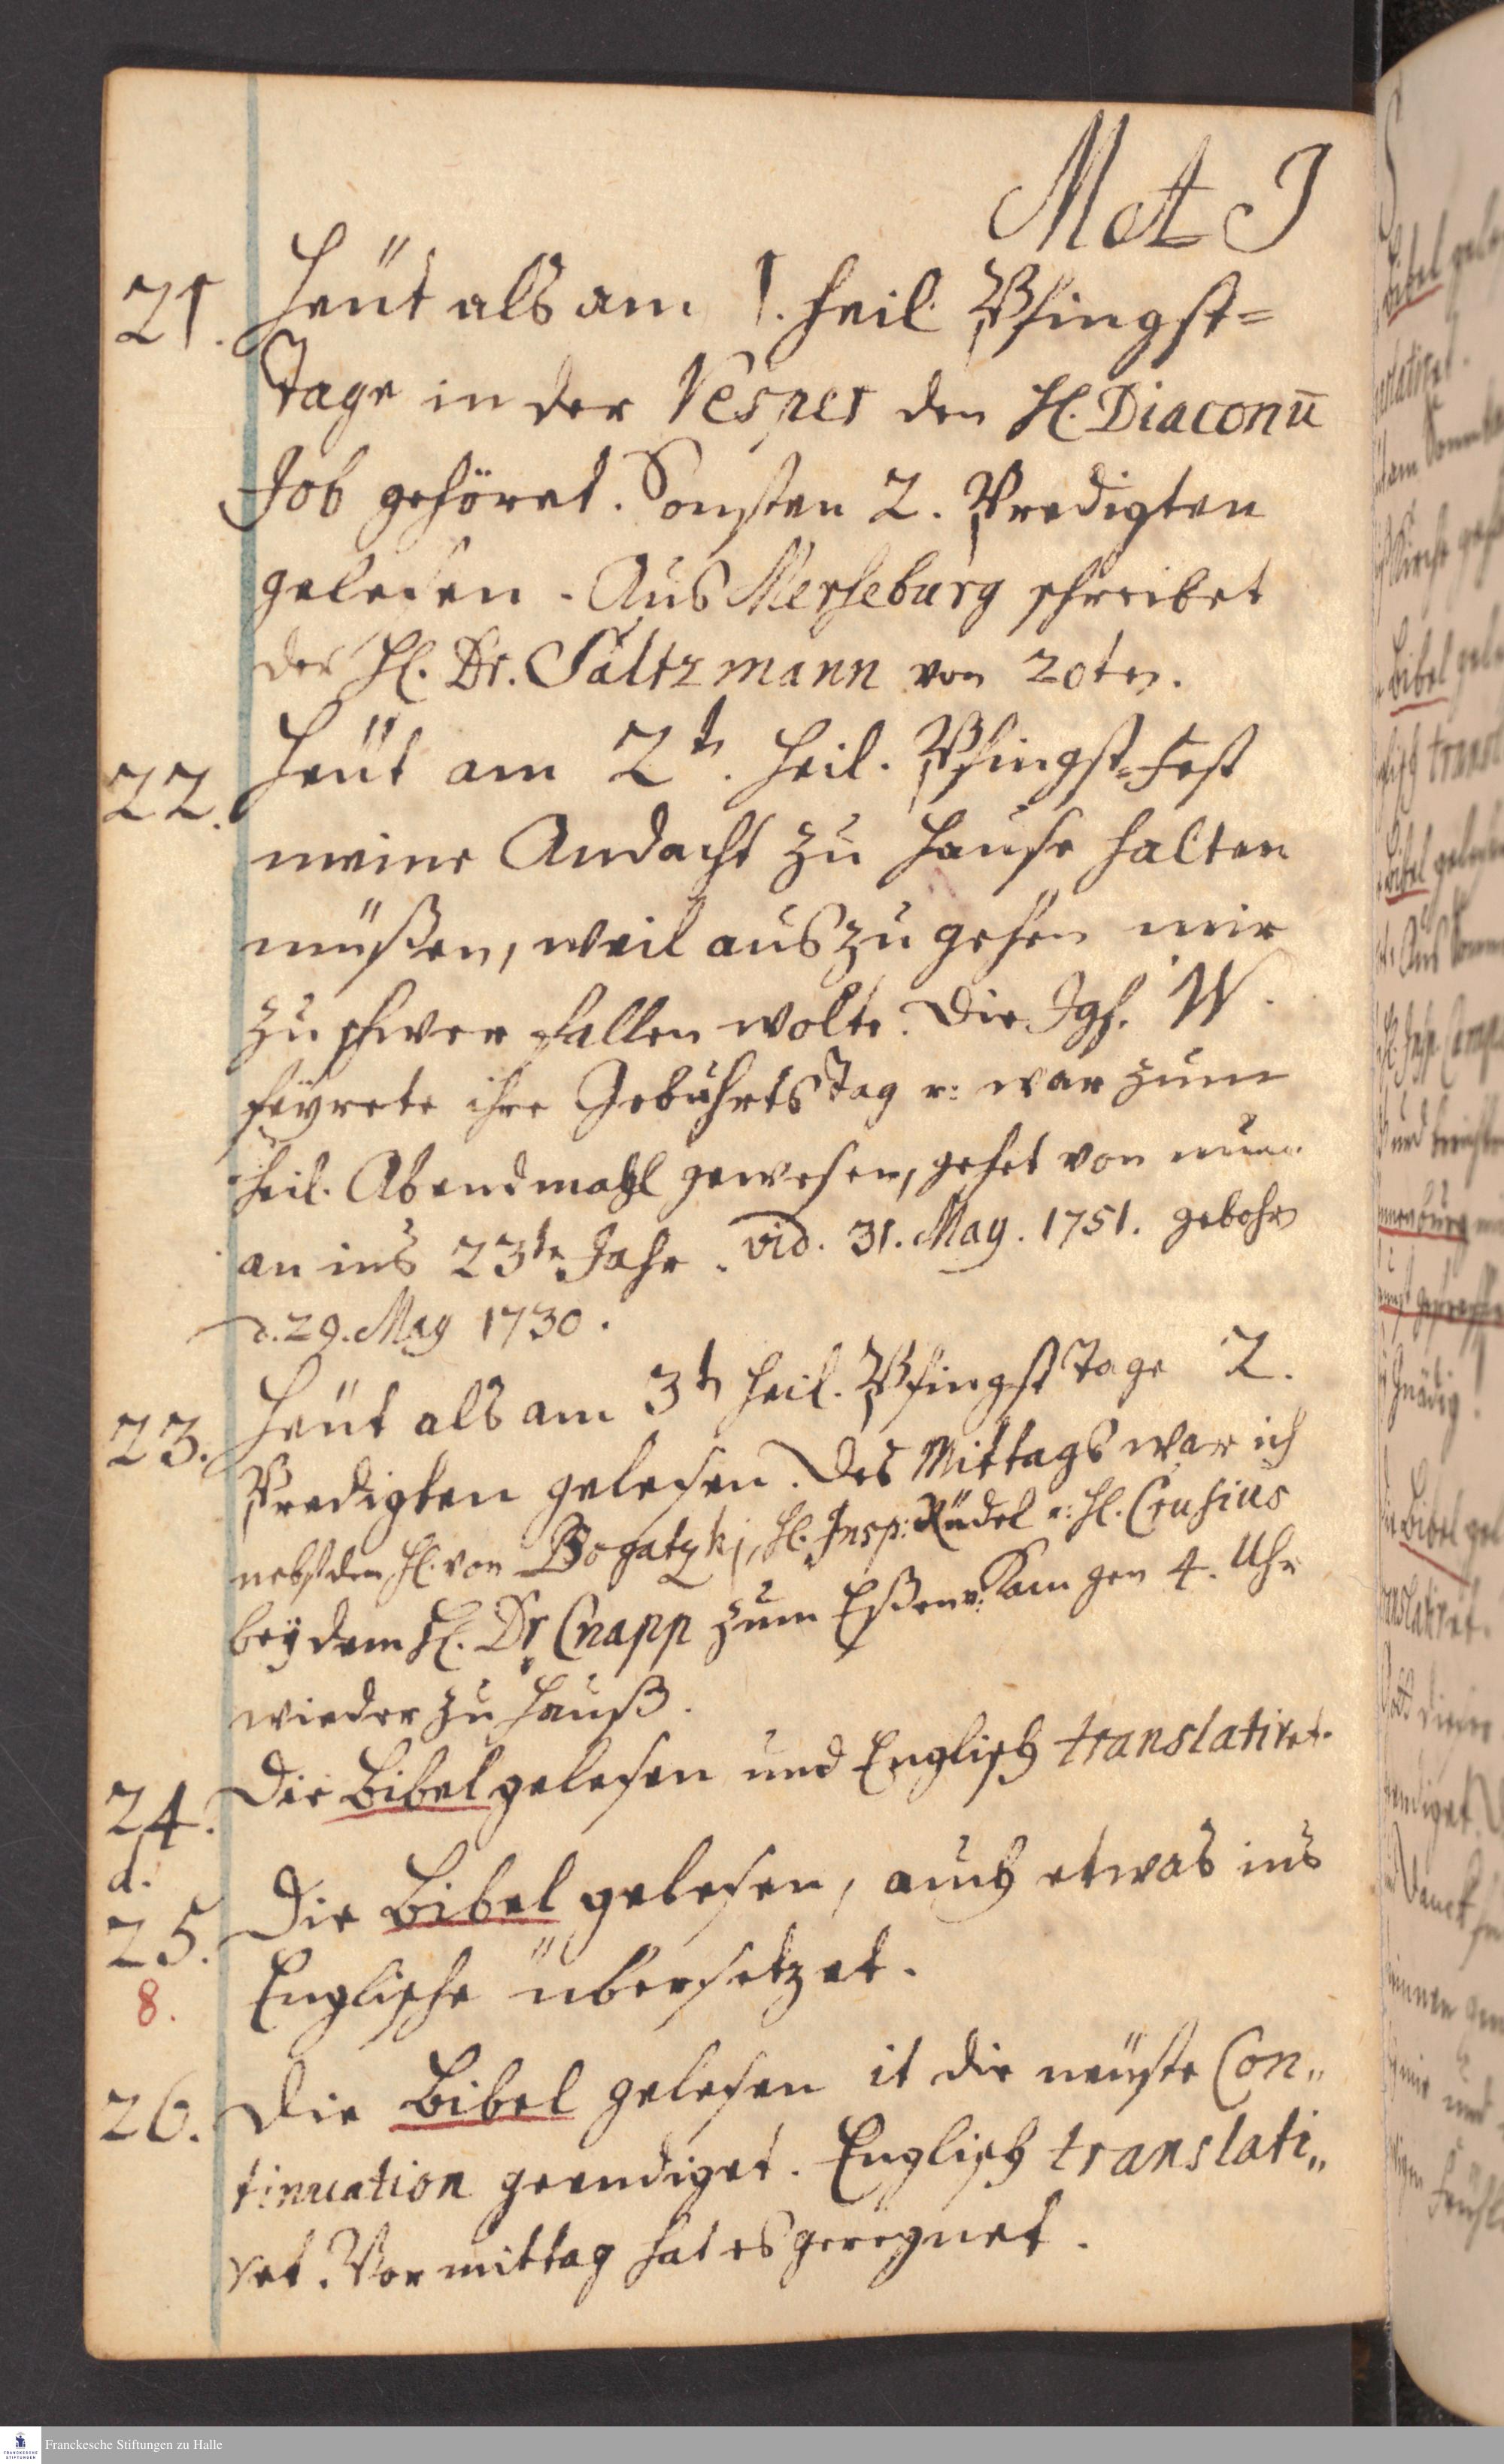 Mot J
21. Heüt als am 1. heil. Pfingst=
Tage in der Vesper den H. Diaconū
Job gehöret. Sonsten 2. Predigten
gelesen. Aus Merseburg schreibet
der H. Dr. Saltzmann von 20ten.
22. Heüt am 2tn. heil. Pfingst=Fest
meine Andacht zu Hause halten
müßen, weil auszugehen mir
zu schwer fallen wolte. Die Jgf. W.
feyrete ihre Gebuhrts Tag u: war zum
heil. Abendmahl gewesen, gehet von nun
an ins 23te Jahr. vid. 31. May. 1751. gebohrn
d. 29. May 1730.
23. Heüt als am 3tn heil. Pfingst Tage 2.
Predigten gelesen. Des Mittags war ich
nebst den H. von Bogatzki, H. Insp: Rüdel u: H. Crusius
bey dem H. Dr Cnapp zum Eßen u: kam gen 4. Uhr
wieder zu Hauß.
24. Die Bibel gelesen und Englisch translatiret.
d.
25. Die Bibel gelesen, auch etwas ins
8. Englische übersetzet.
26. Die Bibel gelesen it die neüste Con„
tinuation geendiget. Englisch translati„
ret. Vormittag hat es geregnet.
Franckesche Stiftungen zu Halle